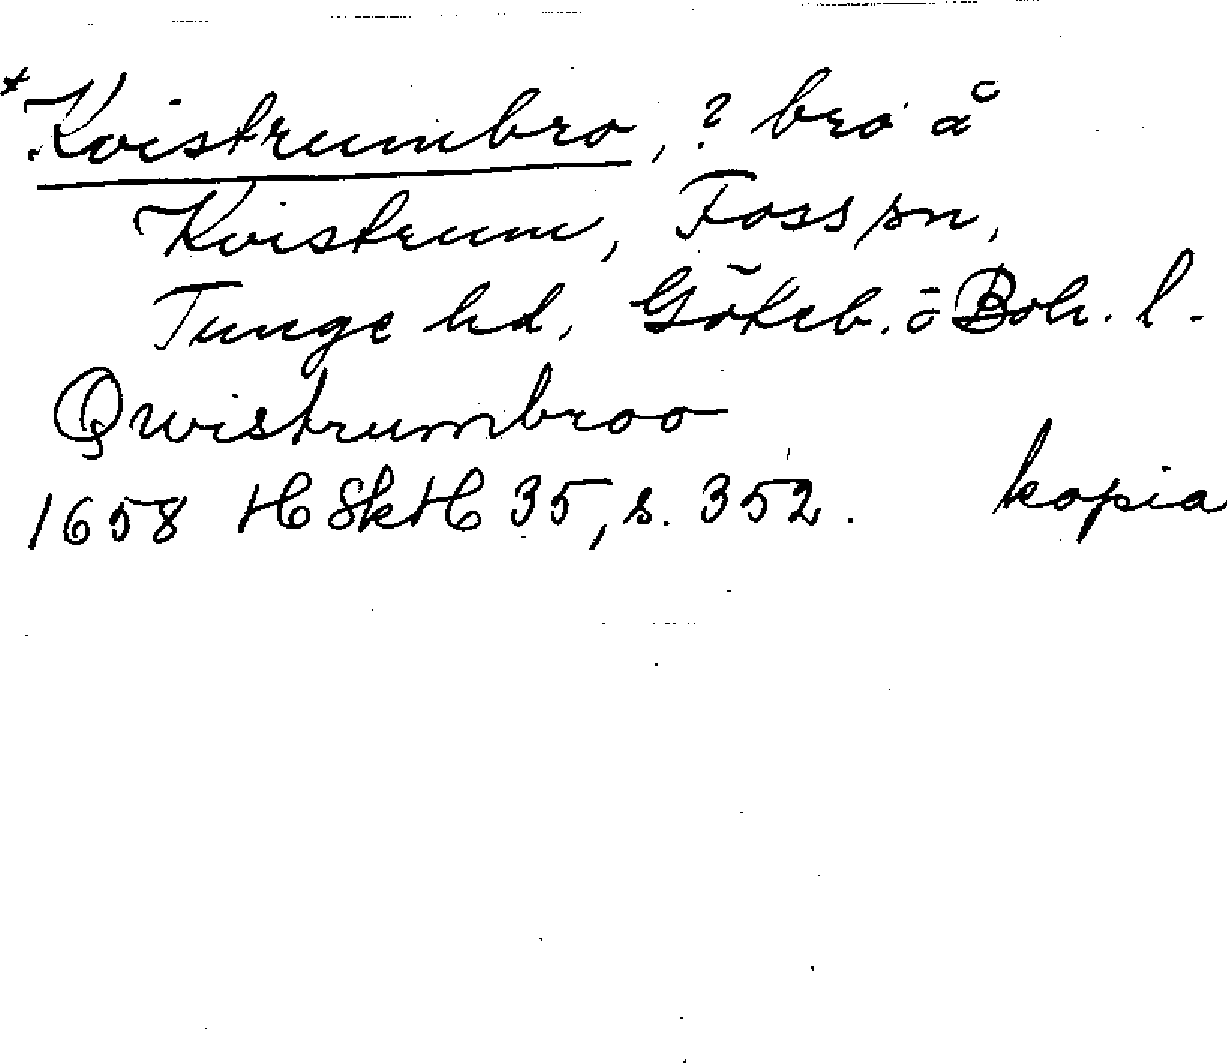 *Kvistrumbro, ? bro å
Kvistrum, Foss sn,
Tunge hd, Göteb. o Boh. l.
Qwistrumbroo
1658 HSkH 35, s. 352. kopia